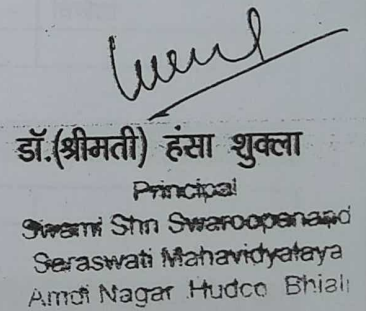 डॉ.(श्रीमती) हंसा शुक्ला
Principal
Swami Shri Swaroopanand
Saraswati Mahavidyalaya
Amdi Nagar Hudco Bhilai